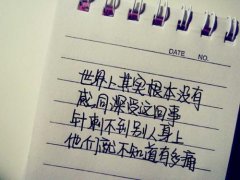 DATE
NO.
世界上其实根本没有
感同深受这回事
针刺不到别人身上
他们就不知道有多痛